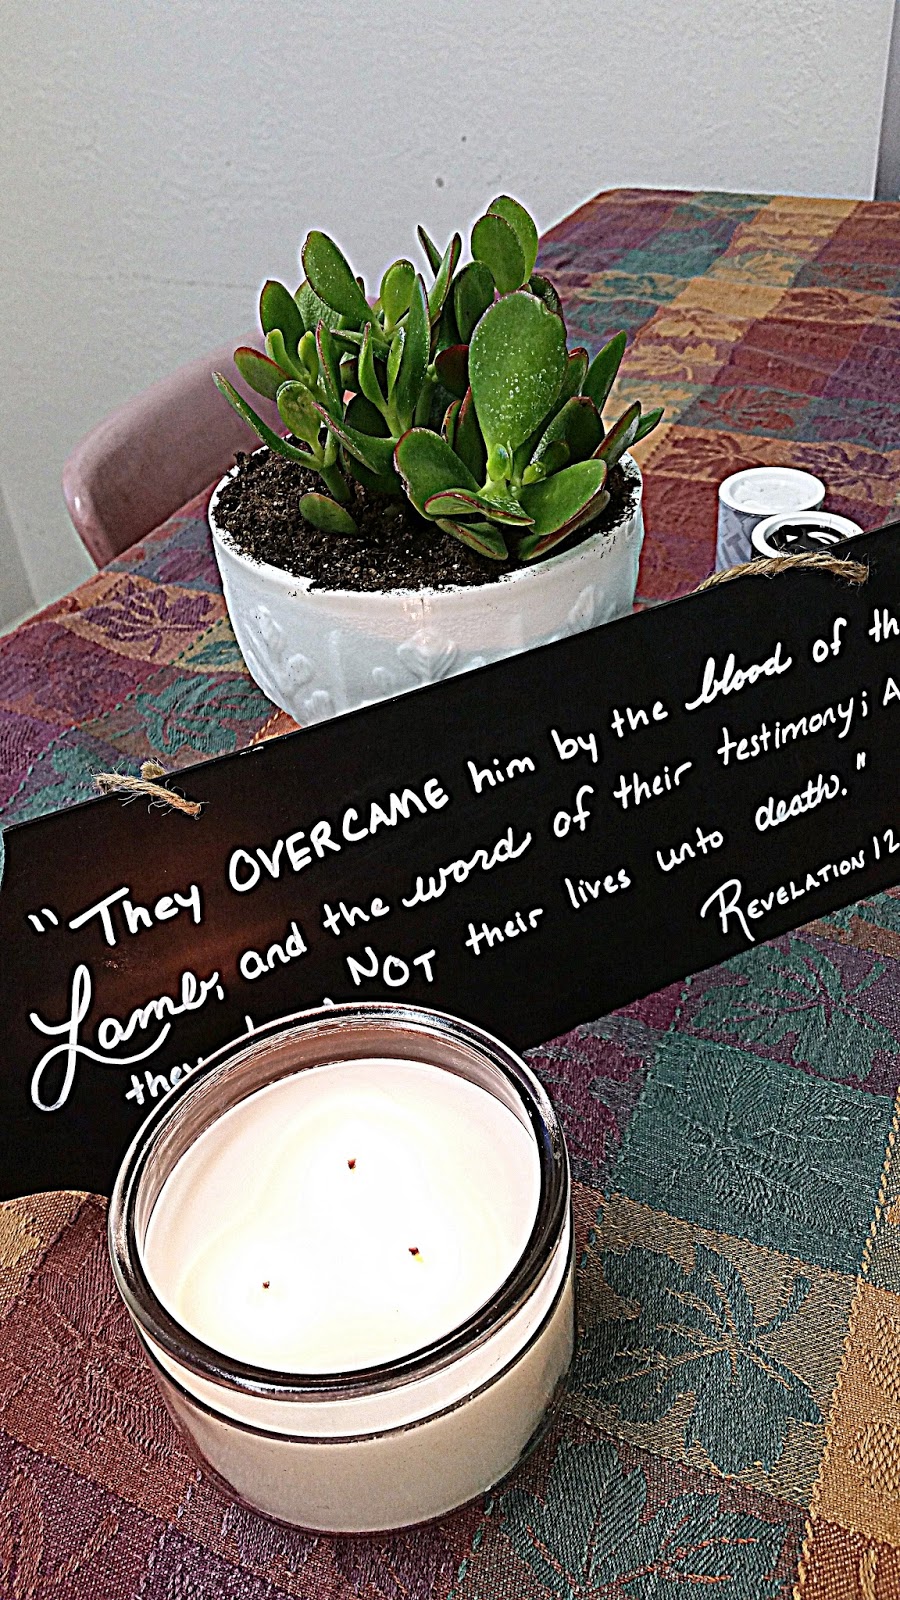 "They OVERCAME him by the blood of th
Lamb, and the word of their testimony; A
they NOT their lives unto death."
REVELATION 12